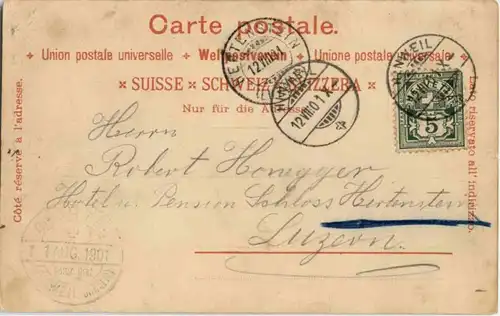 Carte postale.
Union postale universelle Weltpostverein Unione postale universale
SUISSE SCHWEIZ SVIZZERA
Nur für die Adresse
Côté réservé à l'adresse.
Lato riservato all' indirizzo.
12 VIII 01 X
5
Herrn
Robert Honegger
Hotel u Pension Schloss Hertenstein
Luzern.
AUG. 1901